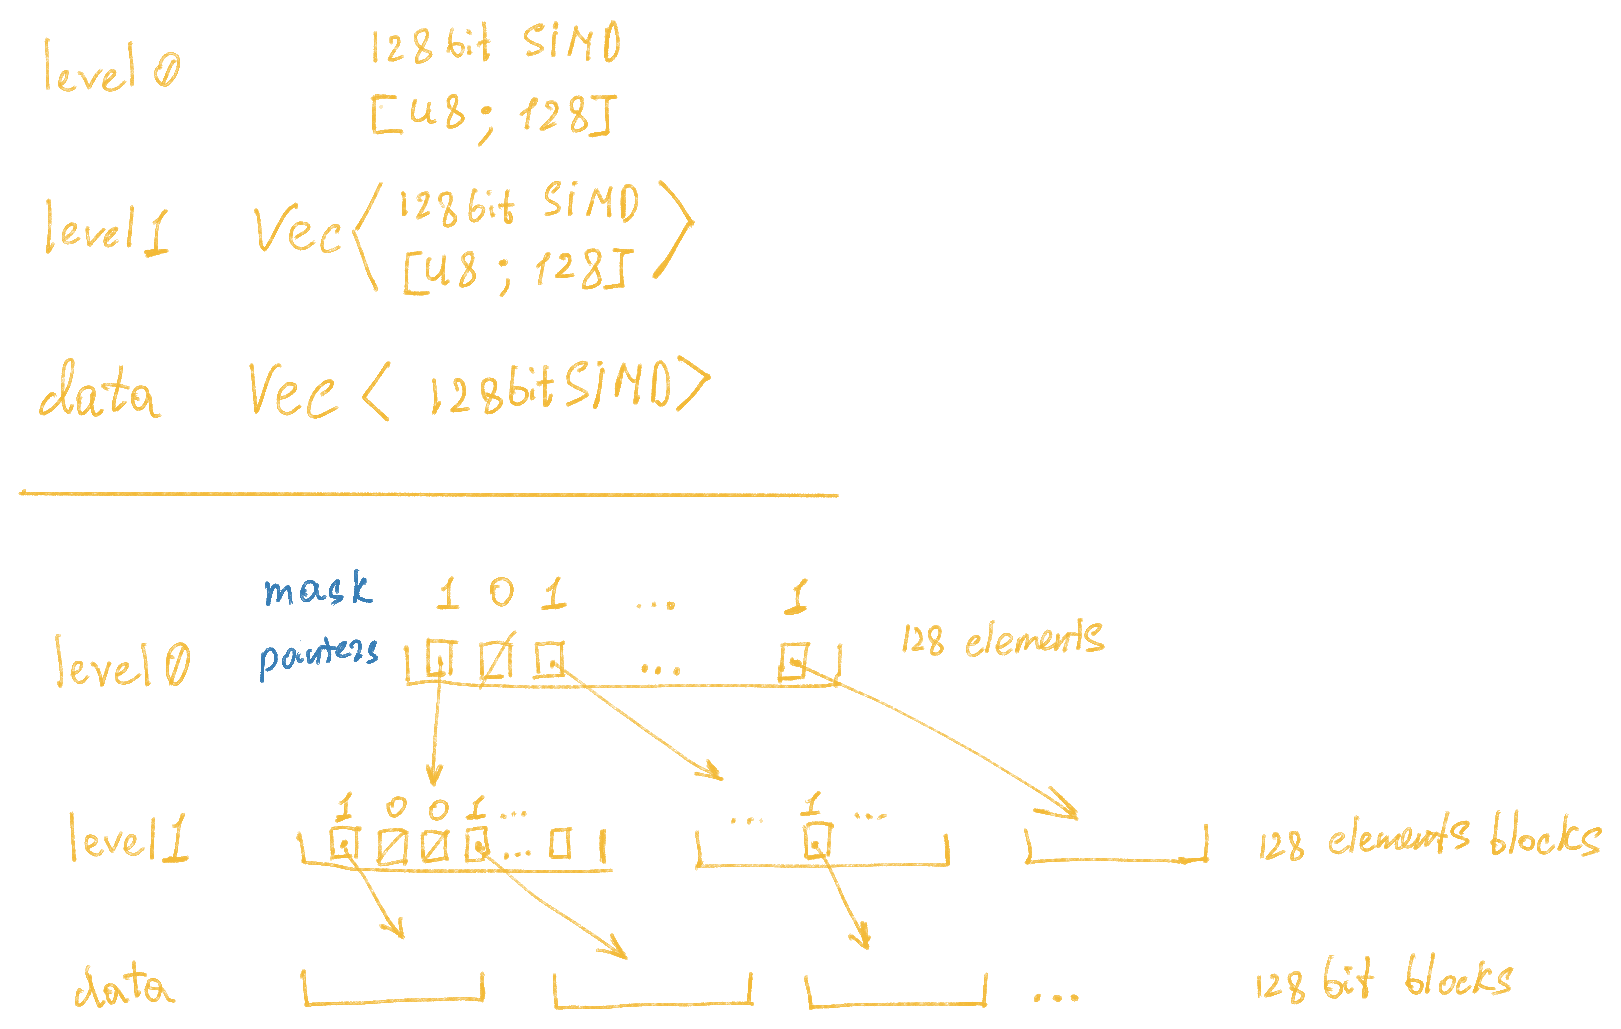 level 0 128bit SiMD
[u8; 128]
level 1 Vec< 128bit SiMD
[u8; 128] >
data Vec < 128bit SiMD>
mask 1 0 1 ... 1
level 0 pointers ... 128 elements
1 0 0 1 ... ... 1 ...
level 1 ... 128 elements blocks
data ... 128 bit blocks